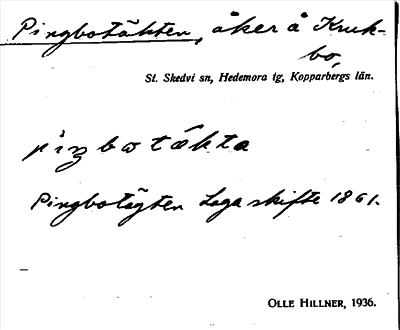 Pingbotäkten, åker å Kruk-
bo,
St. Skedvi sn, Hedemora tg, Kopparbergs län.
piŋbotäkta
Pingbotägten Laga skifte 1861.
OLLE HILLNER, 1936.